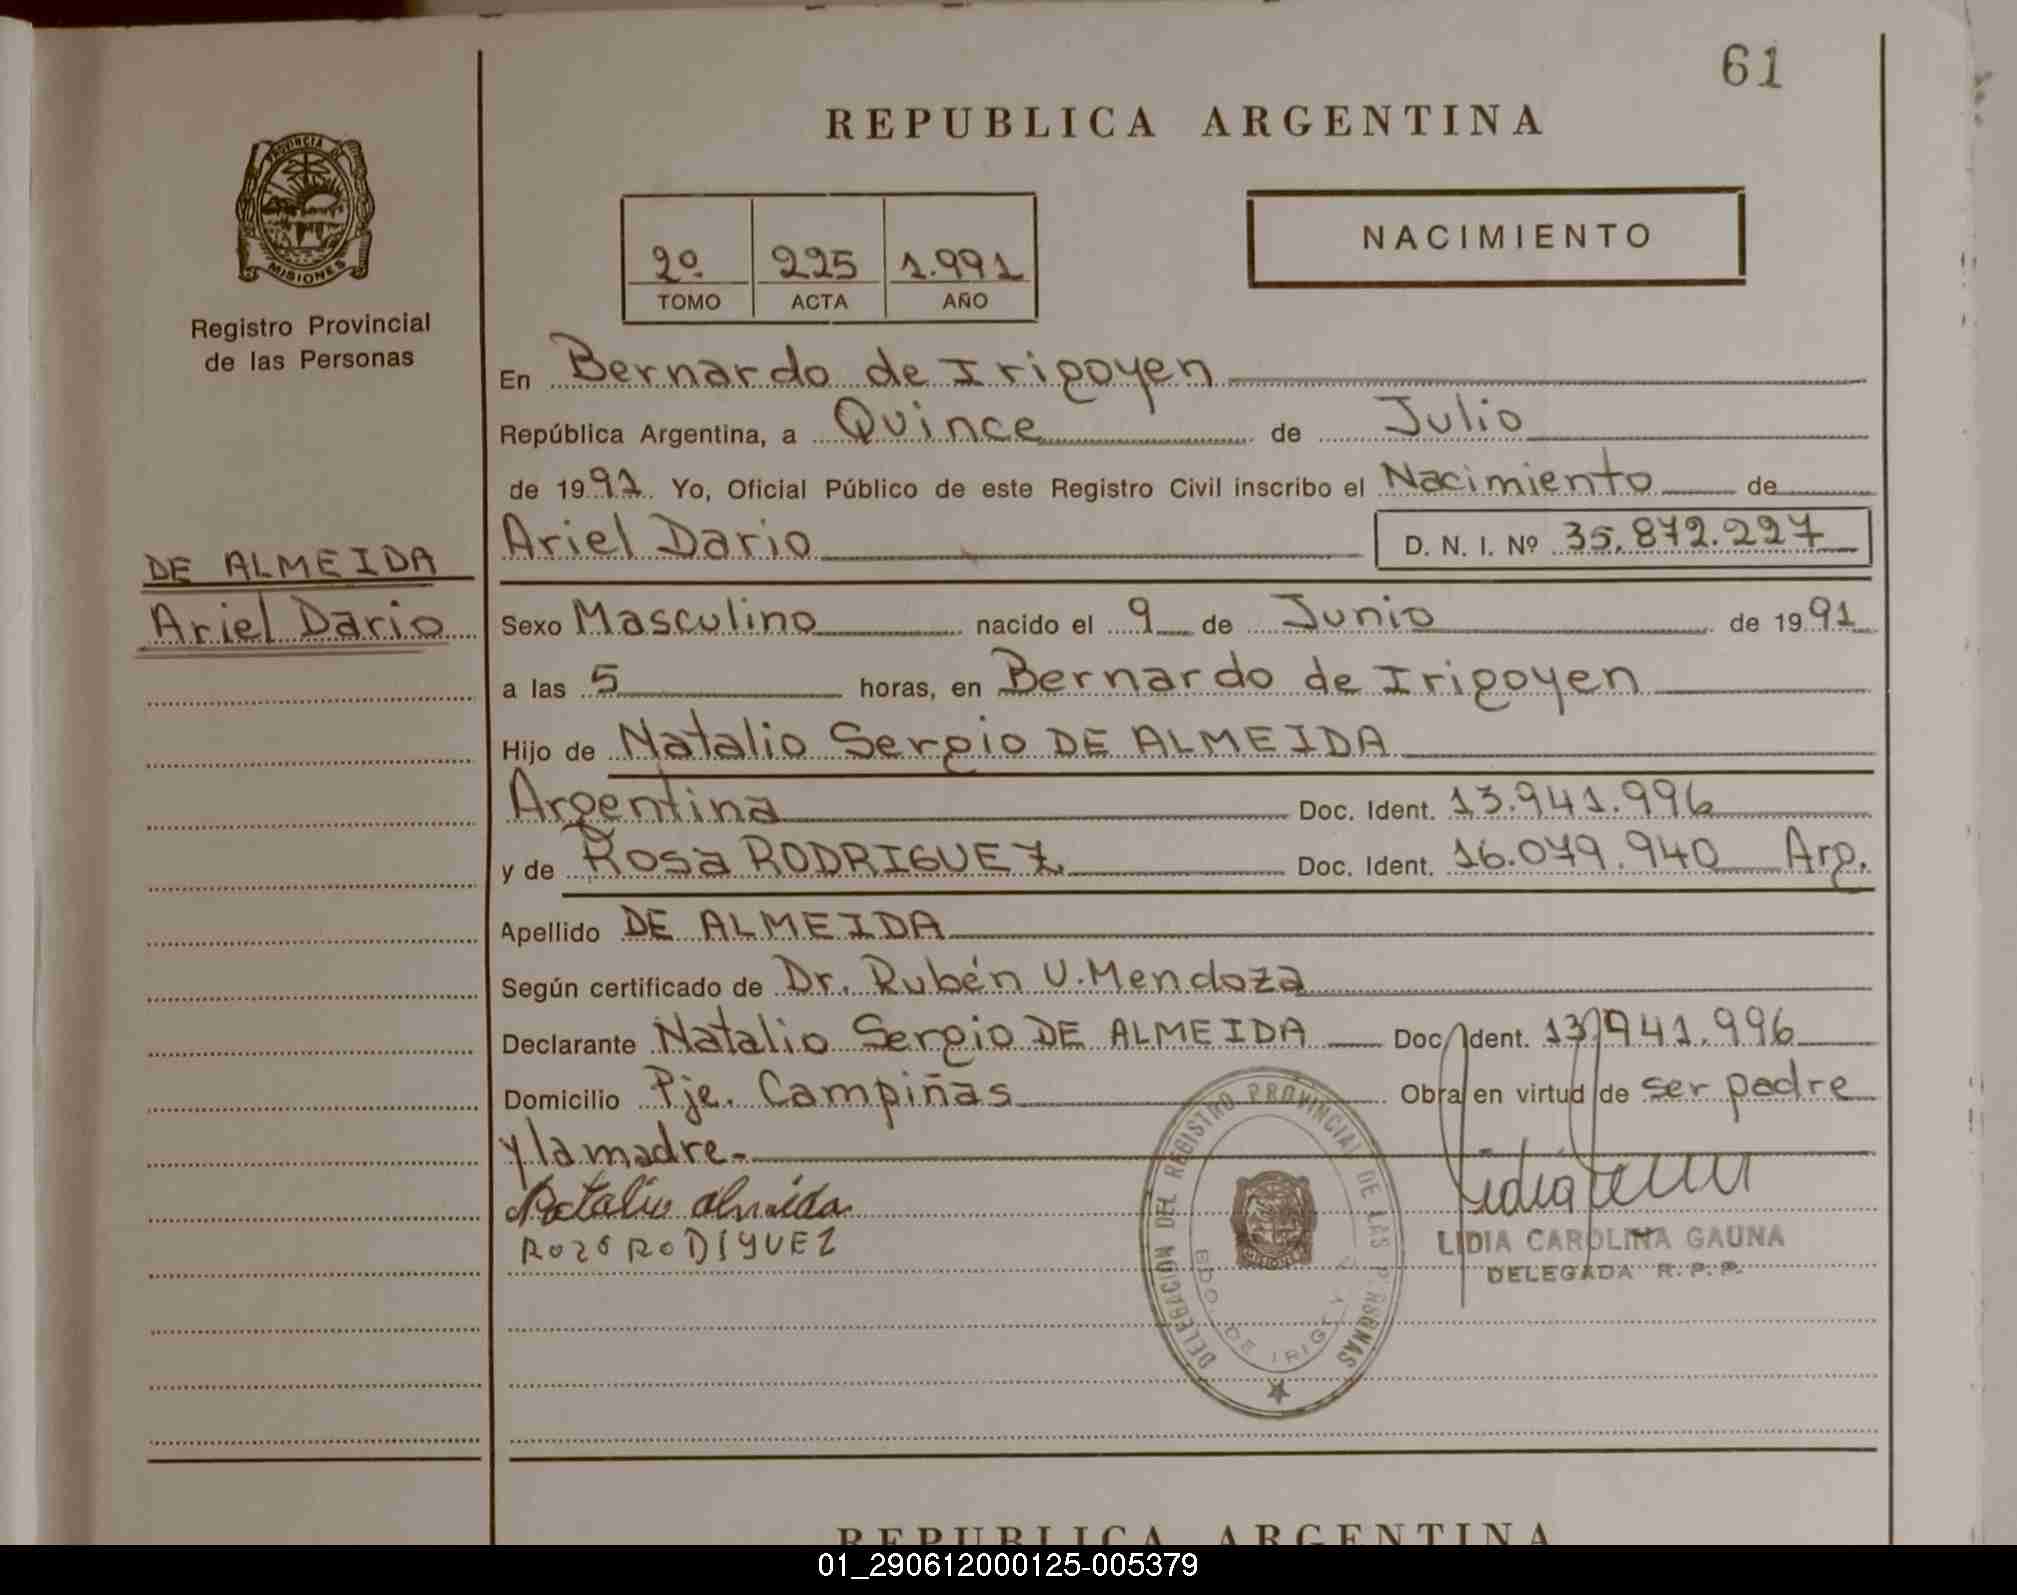 61
REPUBLICA ARGENTINA
PROVINCIA DE
MISIONES
Registro Provincial
de las Personas
NACIMIENTO
2º 225 1.991
TOMO ACTA AÑO
En Bernardo de Irigoyen
República Argentina, a Quince de Julio
de 1991 Yo, Oficial Público de este Registro Civil inscribo el Nacimiento de
Ariel Dario D. N. I. Nº 35.872.227
DE ALMEIDA
Ariel Dario
Sexo Masculino nacido el 9 de Junio de 1991
a las 5 horas, en Bernardo de Irigoyen
Hijo de Natalio Sergio DE ALMEIDA
Argentina Doc. Ident. 13.941.996
y de Rosa RODRIGUEZ Doc. Ident. 16.079.940 Arg.
Apellido DE ALMEIDA
Según certificado de Dr. Rubén U. Mendoza
Declarante Natalio Sergio DE ALMEIDA Doc. Ident. 13.941.996
Domicilio Pje. Campiñas Obra en virtud de ser padre
y la madre.-
Natalio Almeida
ROZO RODIYUEZ
LIDIA CAROLINA GAUNA
DELEGADA R.P.P.
DELEGACION DEL REGISTRO PROVINCIAL DE LAS PERSONAS
BDO. DE IRIGOYEN
REPUBLICA ARGENTINA
01_290612000125-005379